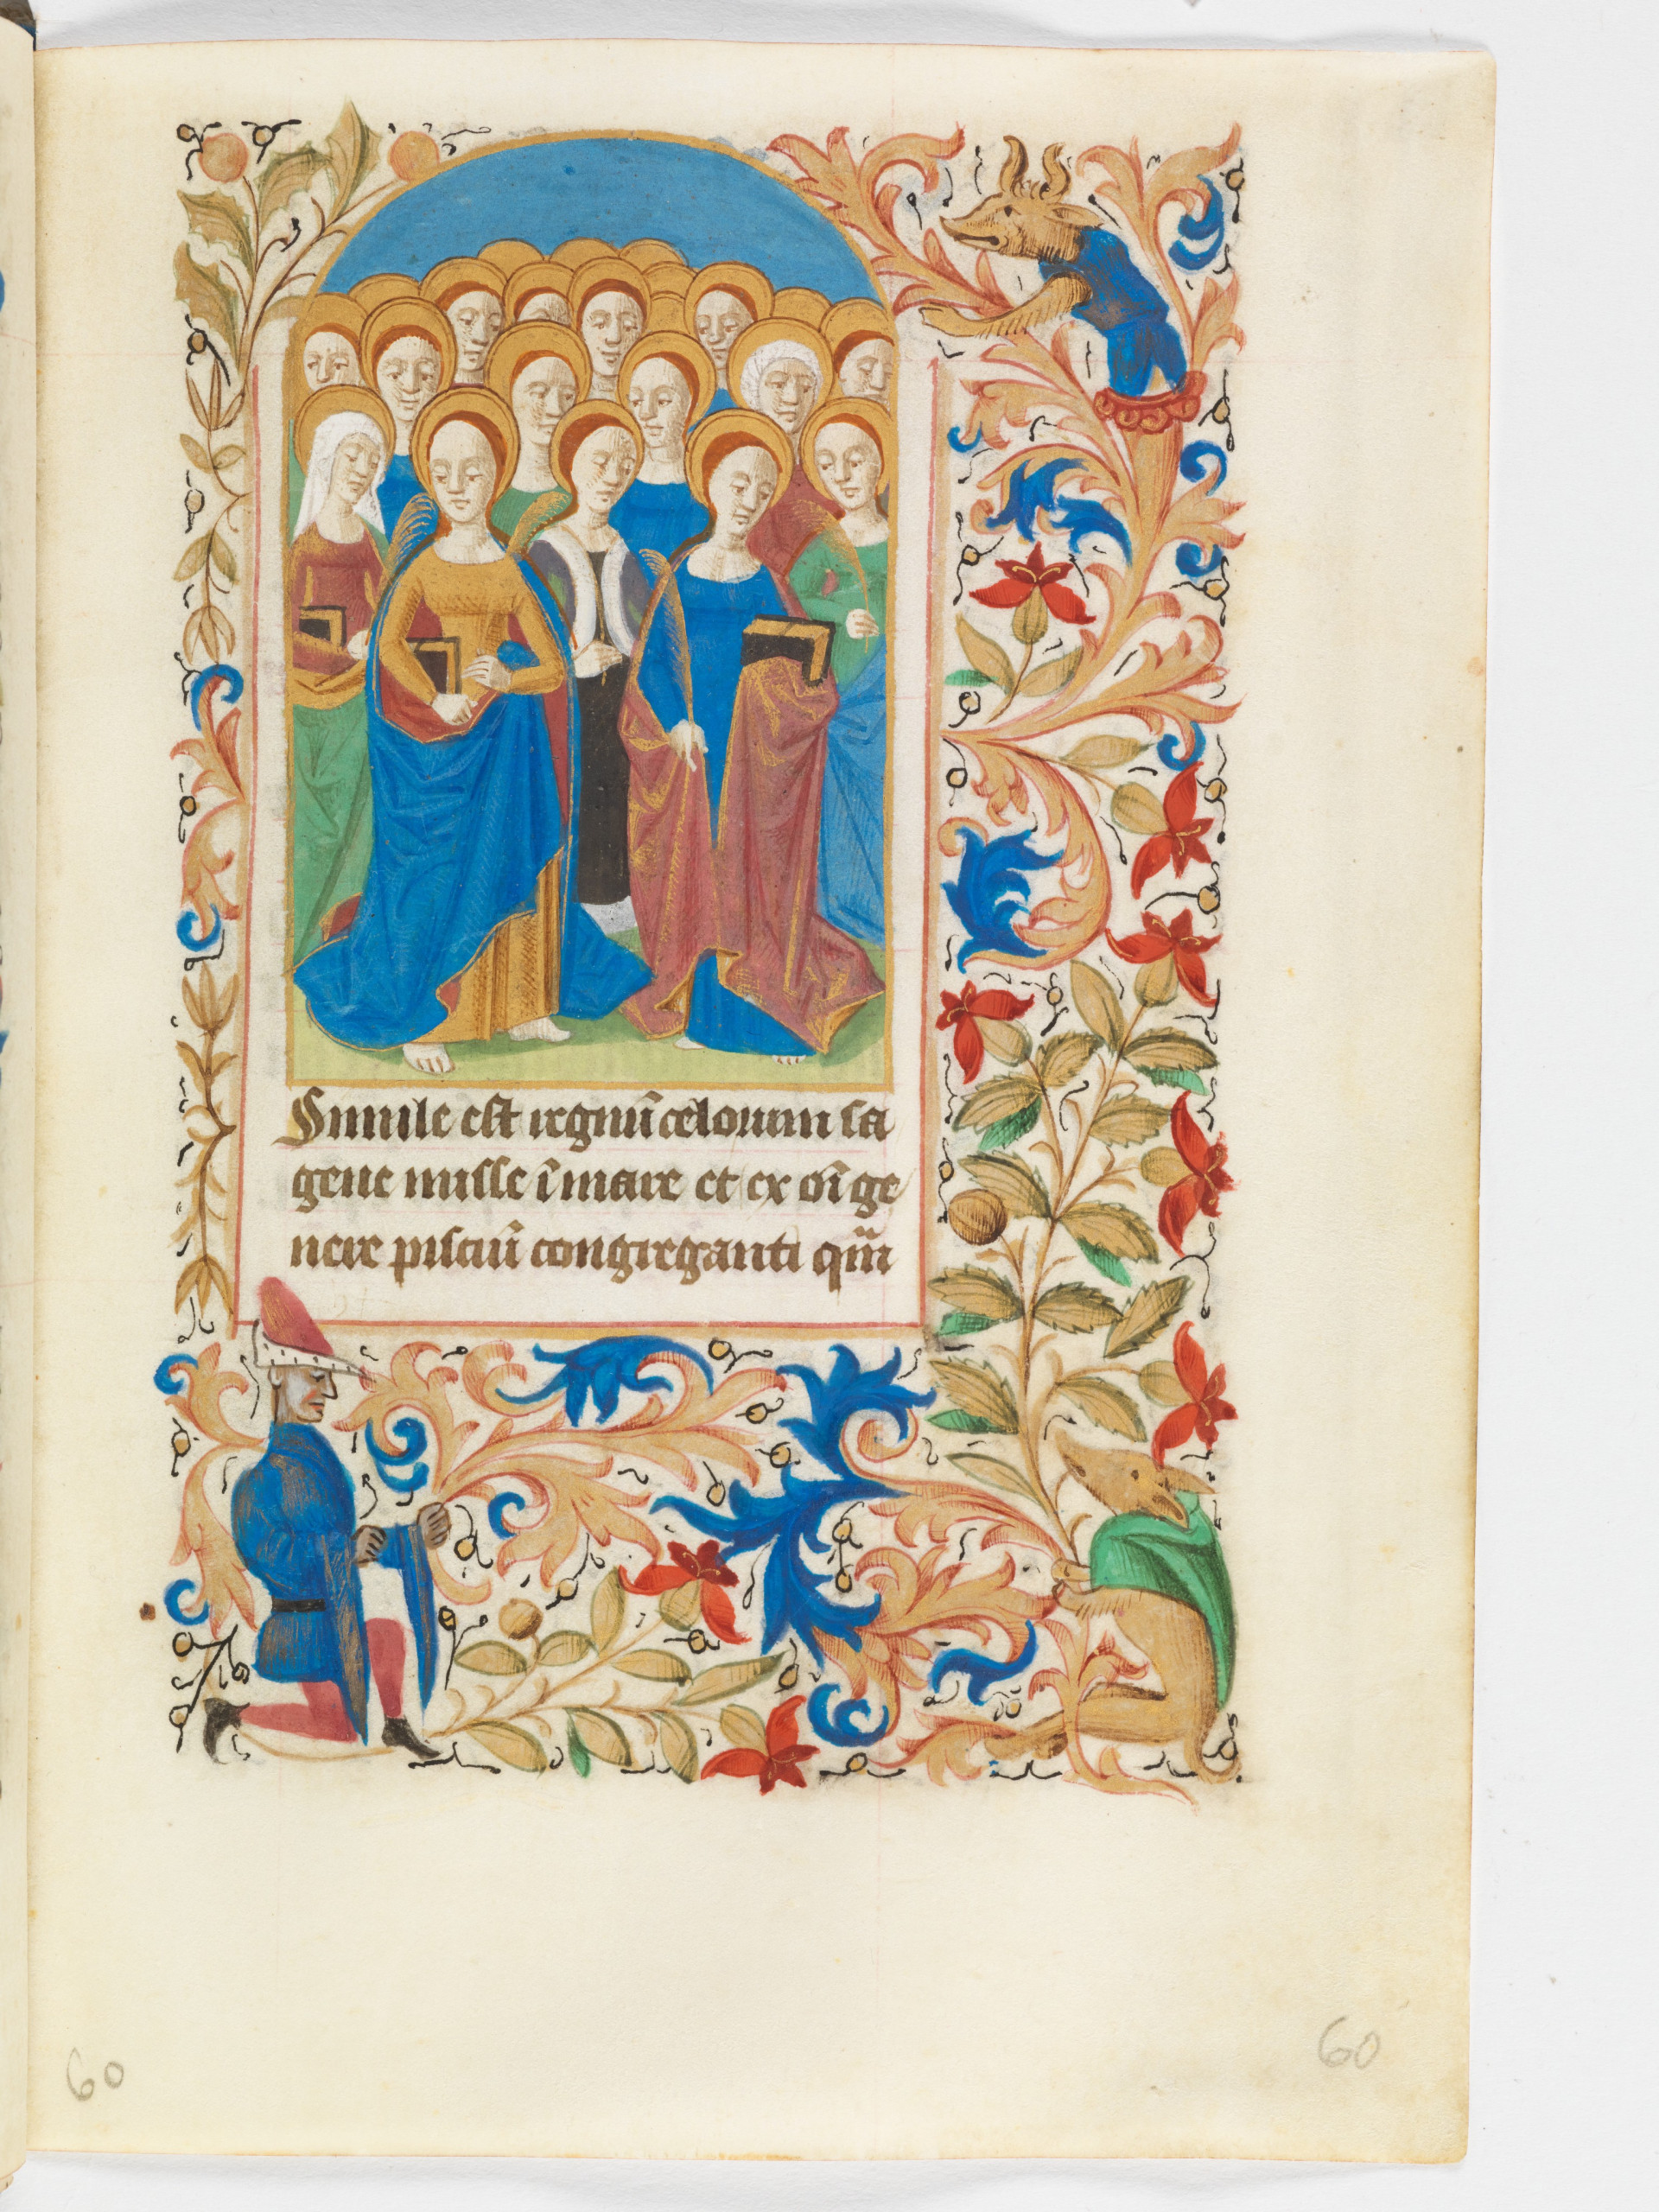 Simile est regnũ celorum sa
gene misse ĩ mare et ex oĩ ge
nere pisciũ congreganti qm̃
60 60